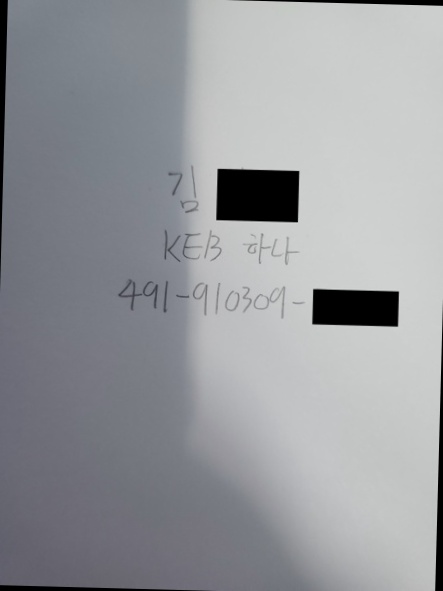 김
KEB 하나
491-910309-